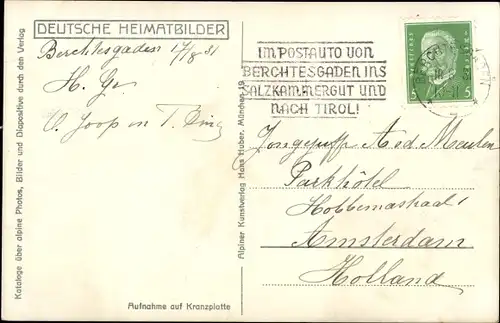 DEUTSCHE HEIMATBILDER
Berchtesgaden 17/8 31
H. Gr.
Joop en T.
Kataloge über alpine Photos, Bilder und Diapositive durch den Verlag
Alpiner Kunstverlag Hans Huber, München 19
Aufnahme auf Kranzplatte
IM POSTAUTO VON
BERCHTESGADEN INS
SALZKAMMERGUT UND
NACH TIROL!
5 5
A. v. d. Meulen
Parkhôtel
Hobbemastraat
Amsterdam
Holland